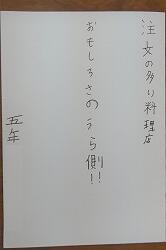 注文の多い料理店
おもしろさのうら側!!
五年